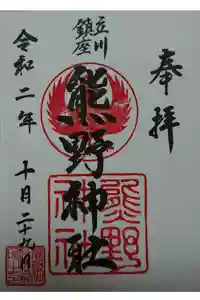 奉拝
立川
鎮座
熊野神社
熊野
神社
令和二年
十月二十九日